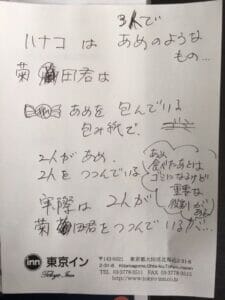 3人で
ハナコ は あめのような
もの…
菊田君は
あめを 包んでいる
包み紙で
2人が あめ、
2人を つつんでいる
あめ
食べたあとは
ゴミになるけど
重要な
役割が
ある
実際は 2人が
菊田君をつつんでいるが…
inn 東京イン
Tokyo Inn
〒143-0021 東京都大田区北馬込2-31-8
2-31-8 Kitamagome, Ohta-ku Tokyo, Japan
TEL 03-3778-5151 FAX 03-3778-5211